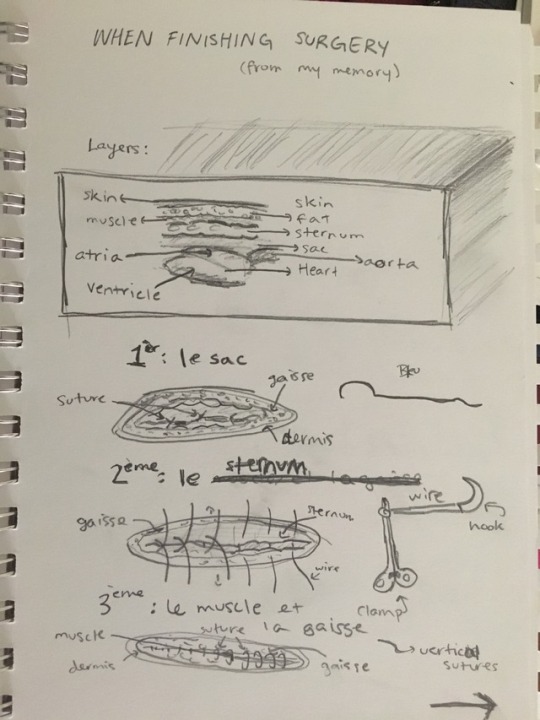 WHEN FINISHING SURGERY
(from my memory)
Layers:
skin
skin
muscle
fat
sternum
atria
sac
aorta
Heart
ventricle
1er: le sac
suture
gaisse
Bleu
dermis
2ème: le sternum
gaisse
sternum
wire
wire
hook
clamp
3ème: le muscle et
la gaisse
suture
muscle
dermis
gaisse
vertical
sutures